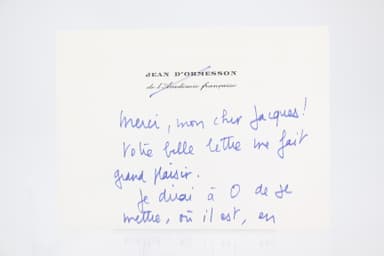 JEAN D'ORMESSON
de l'Académie française
Merci, mon cher Jacques!
Votre belle lettre me fait
grand plaisir.
Je dirai à O de se
mettre, où il est, en